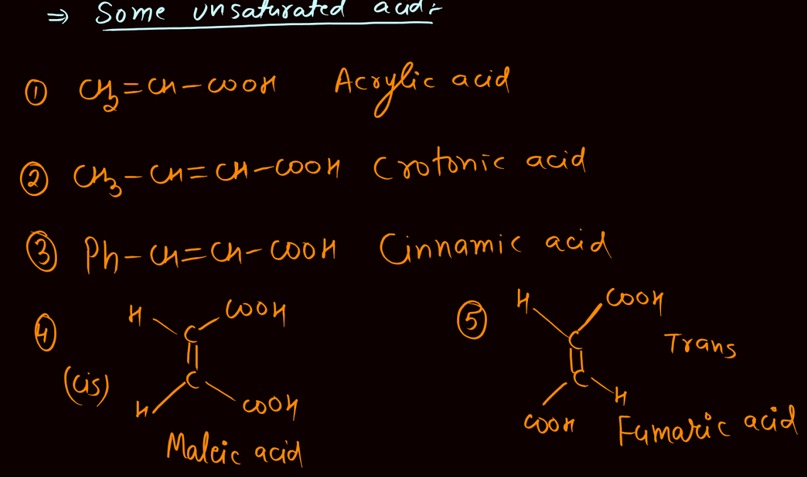 ⇒ Some unsaturated acid:-
① CH2=CH-COOH Acrylic acid
② CH3-CH=CH-COOH Crotonic acid
③ Ph-CH=CH-COOH Cinnamic acid
④ (cis)
H COOH
C
||
C
H COOH
Maleic acid
⑤ H COOH
C
||
C
COOH H
Trans
Fumaric acid